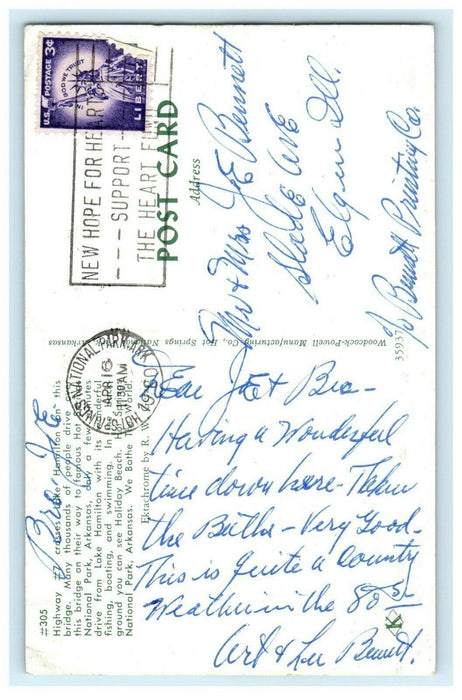 U.S. POSTAGE 3¢
IN GOD WE TRUST
LIBERTY
NEW HOPE FOR HEART
- - - SUPPORT - -
THE HEART FUND
POST CARD
Address
Mr + Mrs J E Bennett
Slade Ave
Elgin Ill.
c/o Bennett Printing Co.
Woodcock-Powell Manufacturing Co., Hot Springs National Park, Arkansas
35937
HOT SPRINGS NATIONAL PARK, ARK.
APR 16
11 30 AM
1960
#305
Highway #7 crosses Lake Hamilton on this
bridge. Many thousands of people drive over
this bridge on their way to famous Hot Springs
National Park, Arkansas, only a few minutes
drive from Lake Hamilton with its wonderful
fishing, boating, and swimming. In the fore-
ground you can see Holiday Beach. Hot Springs
National Park, Arkansas. We Bathe The World.
Ektachrome by R. W.
Dear J E + Bea -
Having a Wonderful
time down here - Taken
the Baths - Very Good -
This is Quite a Country
Weather in the 80s -
Art + Lee Bennett.
K